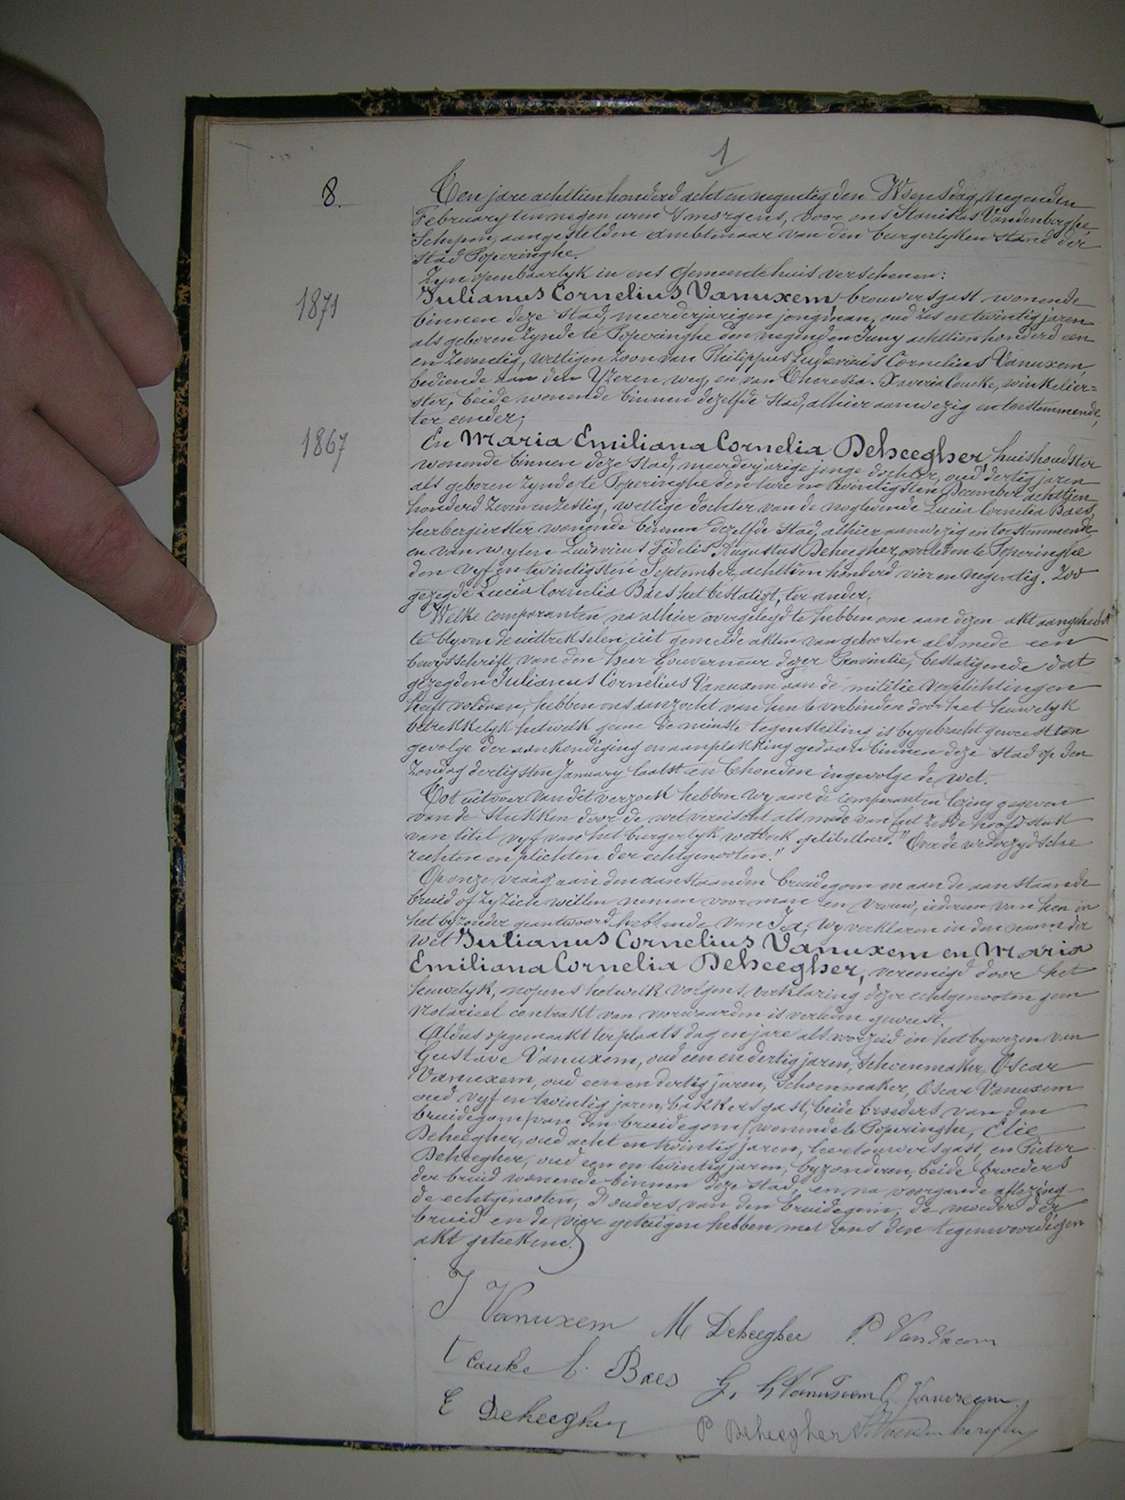 1
8.
Ten jare achttien honderd acht en negentig den Woensdag negenden
February ten negen uren 's morgens, voor ons Stanislas Vandenberghe,
Schepen, aangestelden ambtenaar van den burgerlyken stand der
Stad Poperinghe.
Zyn openbaarlyk in ons Gemeentehuis verschenen:
1871
Julianus Cornelius Vanuxem, brouwersgast wonende
binnen deze Stad, meerderjarigen jongman, oud zes en twintig jaren
als geboren zynde te Poperinghe den negenden Juny achttien honderd een
en zeventig, wettigen zoon van Philippus Ludovicus Cornelius Vanuxem,
bediende aan den Yzeren weg, en van Theresia Xaveria Couke, winkelier=
ster, beide wonende binnen dezelfde Stad, alhier aanwezig en toestemmende,
ter eender;
1867
En Maria Emiliana Cornelia Deheegher, huishoudster
wonende binnen deze Stad, meerderjarige jonge dochter, oud dertig jaren
als geboren zynde te Poperinghe den twee en twintigsten December achttien
honderd zeven en zestig, wettige dochter van de nog levende Lucia Cornelia Baes,
herbergierster wonende binnen dezelfde Stad, alhier aanwezig en toestemmende
en van wylen Ludovicus Fidelis Augustus Deheegher, overleden te Poperinghe
den vyf en twintigsten September achttien honderd vier en negentig. Zoo
gezegde Lucia Cornelia Baes het bestatigt, ter ander;
Welke comparanten na alhier overgelegd te hebben om aan dezen akt aangehecht
te blyven de uittrekselen uit gemelde akten van geboorten alsmede een
bewysschrift van den Heer Gouverneur dezer Provintie, bestatigende dat
gezegden Julianus Cornelius Vanuxem aan de militie verplichtingen
heeft voldaan, hebben ons aanzocht van hen te verbinden door het huwelyk
betrekkelyk hetwelk geene de minste tegenstelling is bygebracht geweest ten
gevolge der aankondiging en aanplakking gedaan binnen deze Stad op den
Zondag dertigsten January laatst en behouden ingevolge de wet.
Tot uitvoer van dit verzoek hebben wy aan de comparanten lezing gegeven
van de stukken door de wet vereischt alsmede van het zesde hoofdstuk
van titel vyf van het burgerlyk wetboek getiteld "Over de wederzydsche
rechten en plichten der echtgenooten."
Op onze vraag aan den aanstaanden bruidegom en aan de aanstaande
bruid of zy zich willen nemen voor man en vrouw, iedereen van hen in
het byzonder geantwoord hebbende van Ja; wy verklaren in den naam der
wet Julianus Cornelius Vanuxem en Maria
Emiliana Cornelia Deheegher, vereenigd door het
huwelyk, nopens hetwelk volgens verklaring dezer echtgenooten geen
Notarieel contrakt van voorwaarden is verleden geweest.
Aldus opgemaakt ter plaats dag en jare als voorzeid in het bywezen van
Gustave Vanuxem, oud een en dertig jaren, schoenmaker, Oscar
Vanuxem, oud een en dertig jaren, Schoenmaker, Oscar Vanuxem
oud vyf en twintig jaren, bakkersgast, beide broeders van den
bruidegom van den bruidegom wonende te Poperinghe, Elie
Deheegher, oud acht en twintig jaren, leertouwersgast, en Pieter
Deheegher, oud een en twintig jaren, byzonderen, beide broeders
der bruid wonende binnen deze stad, en na voorgaande aflezing
de echtgenooten, d'ouders van den bruidegom, de moeder der
bruid en de vier getuigen hebben met ons dezen tegenwoordigen
akt geteekend.
J Vanuxem M Deheegher P Vanuxem
T Couke C. Baes G. Vanuxem O. Vanuxem
E Deheegher P Deheegher S. Vandenberghe